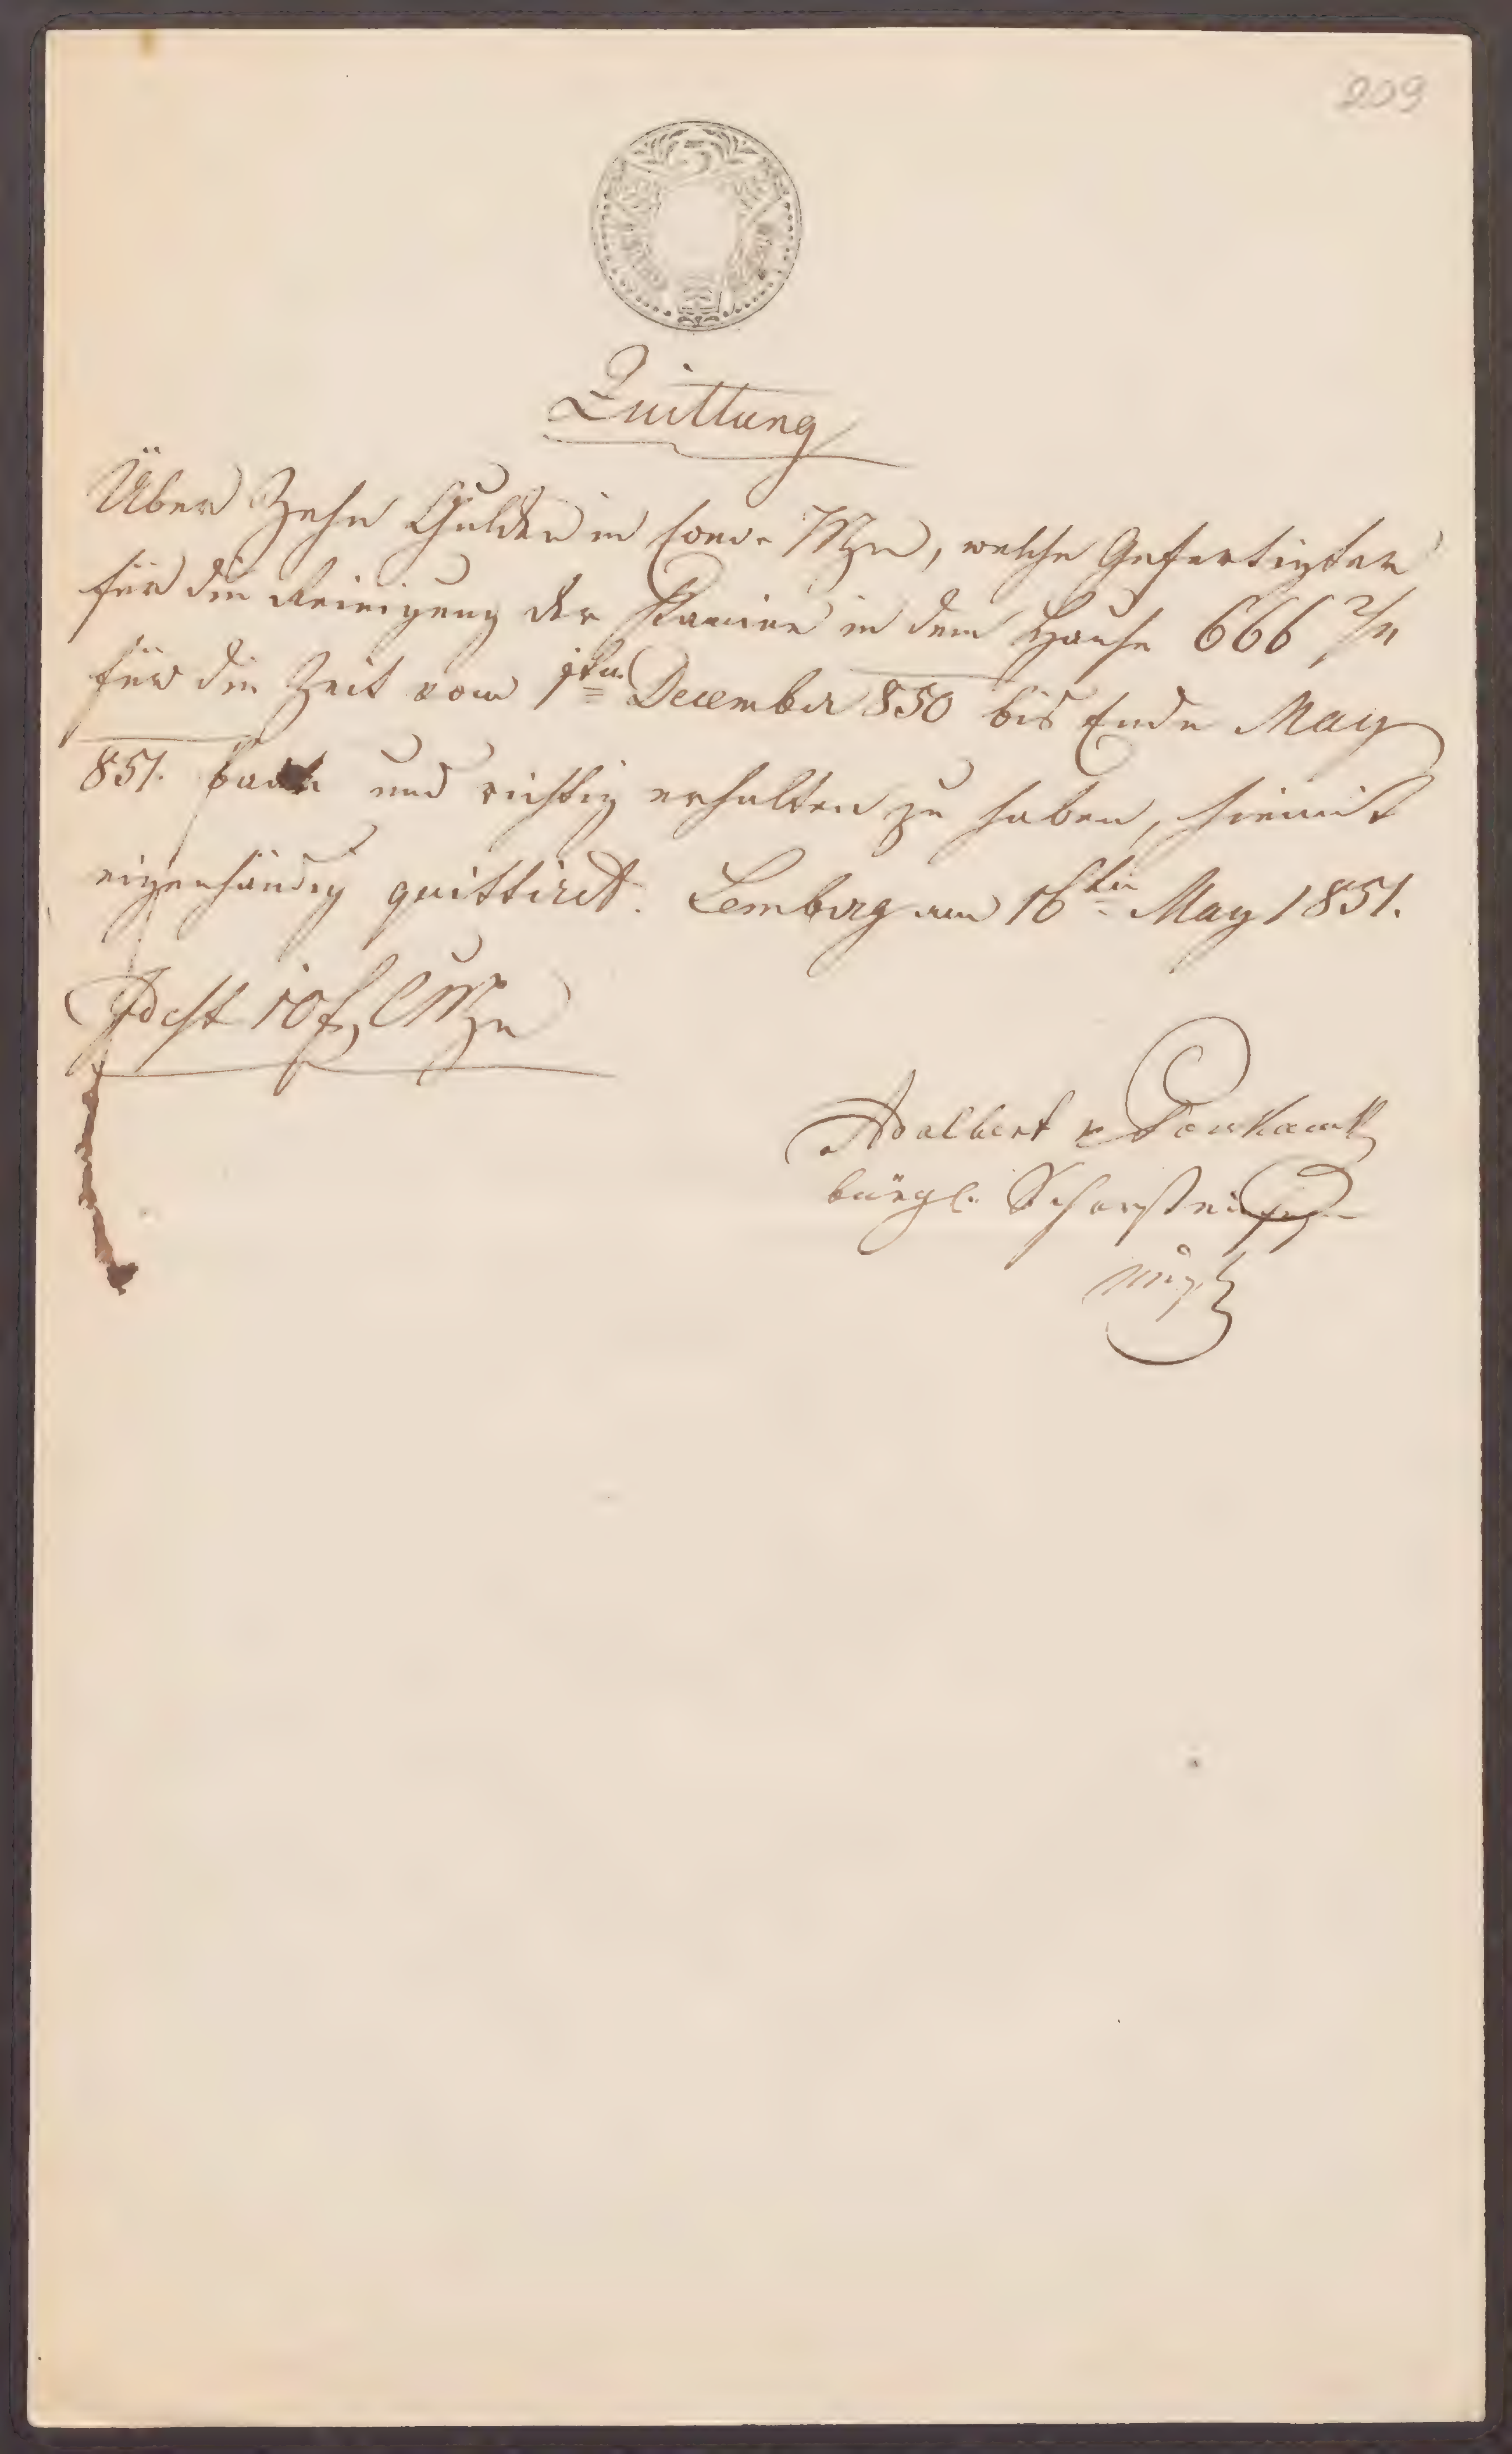 209
Quittung
Über Zehn Gulden in Conv. Mze, welche Gefertigter
für die Reinigung der Kamine in dem Hause 666 2/4
für die Zeit vom 1ten December 850 bis Ende May
851. baar und richtig erhalten zu haben, hiemit
eigenhändig quittirt. Lemberg am 16ten May 1851.
Idest 10 f CMze
Adalbert
bürgl. Schorsteinfeg